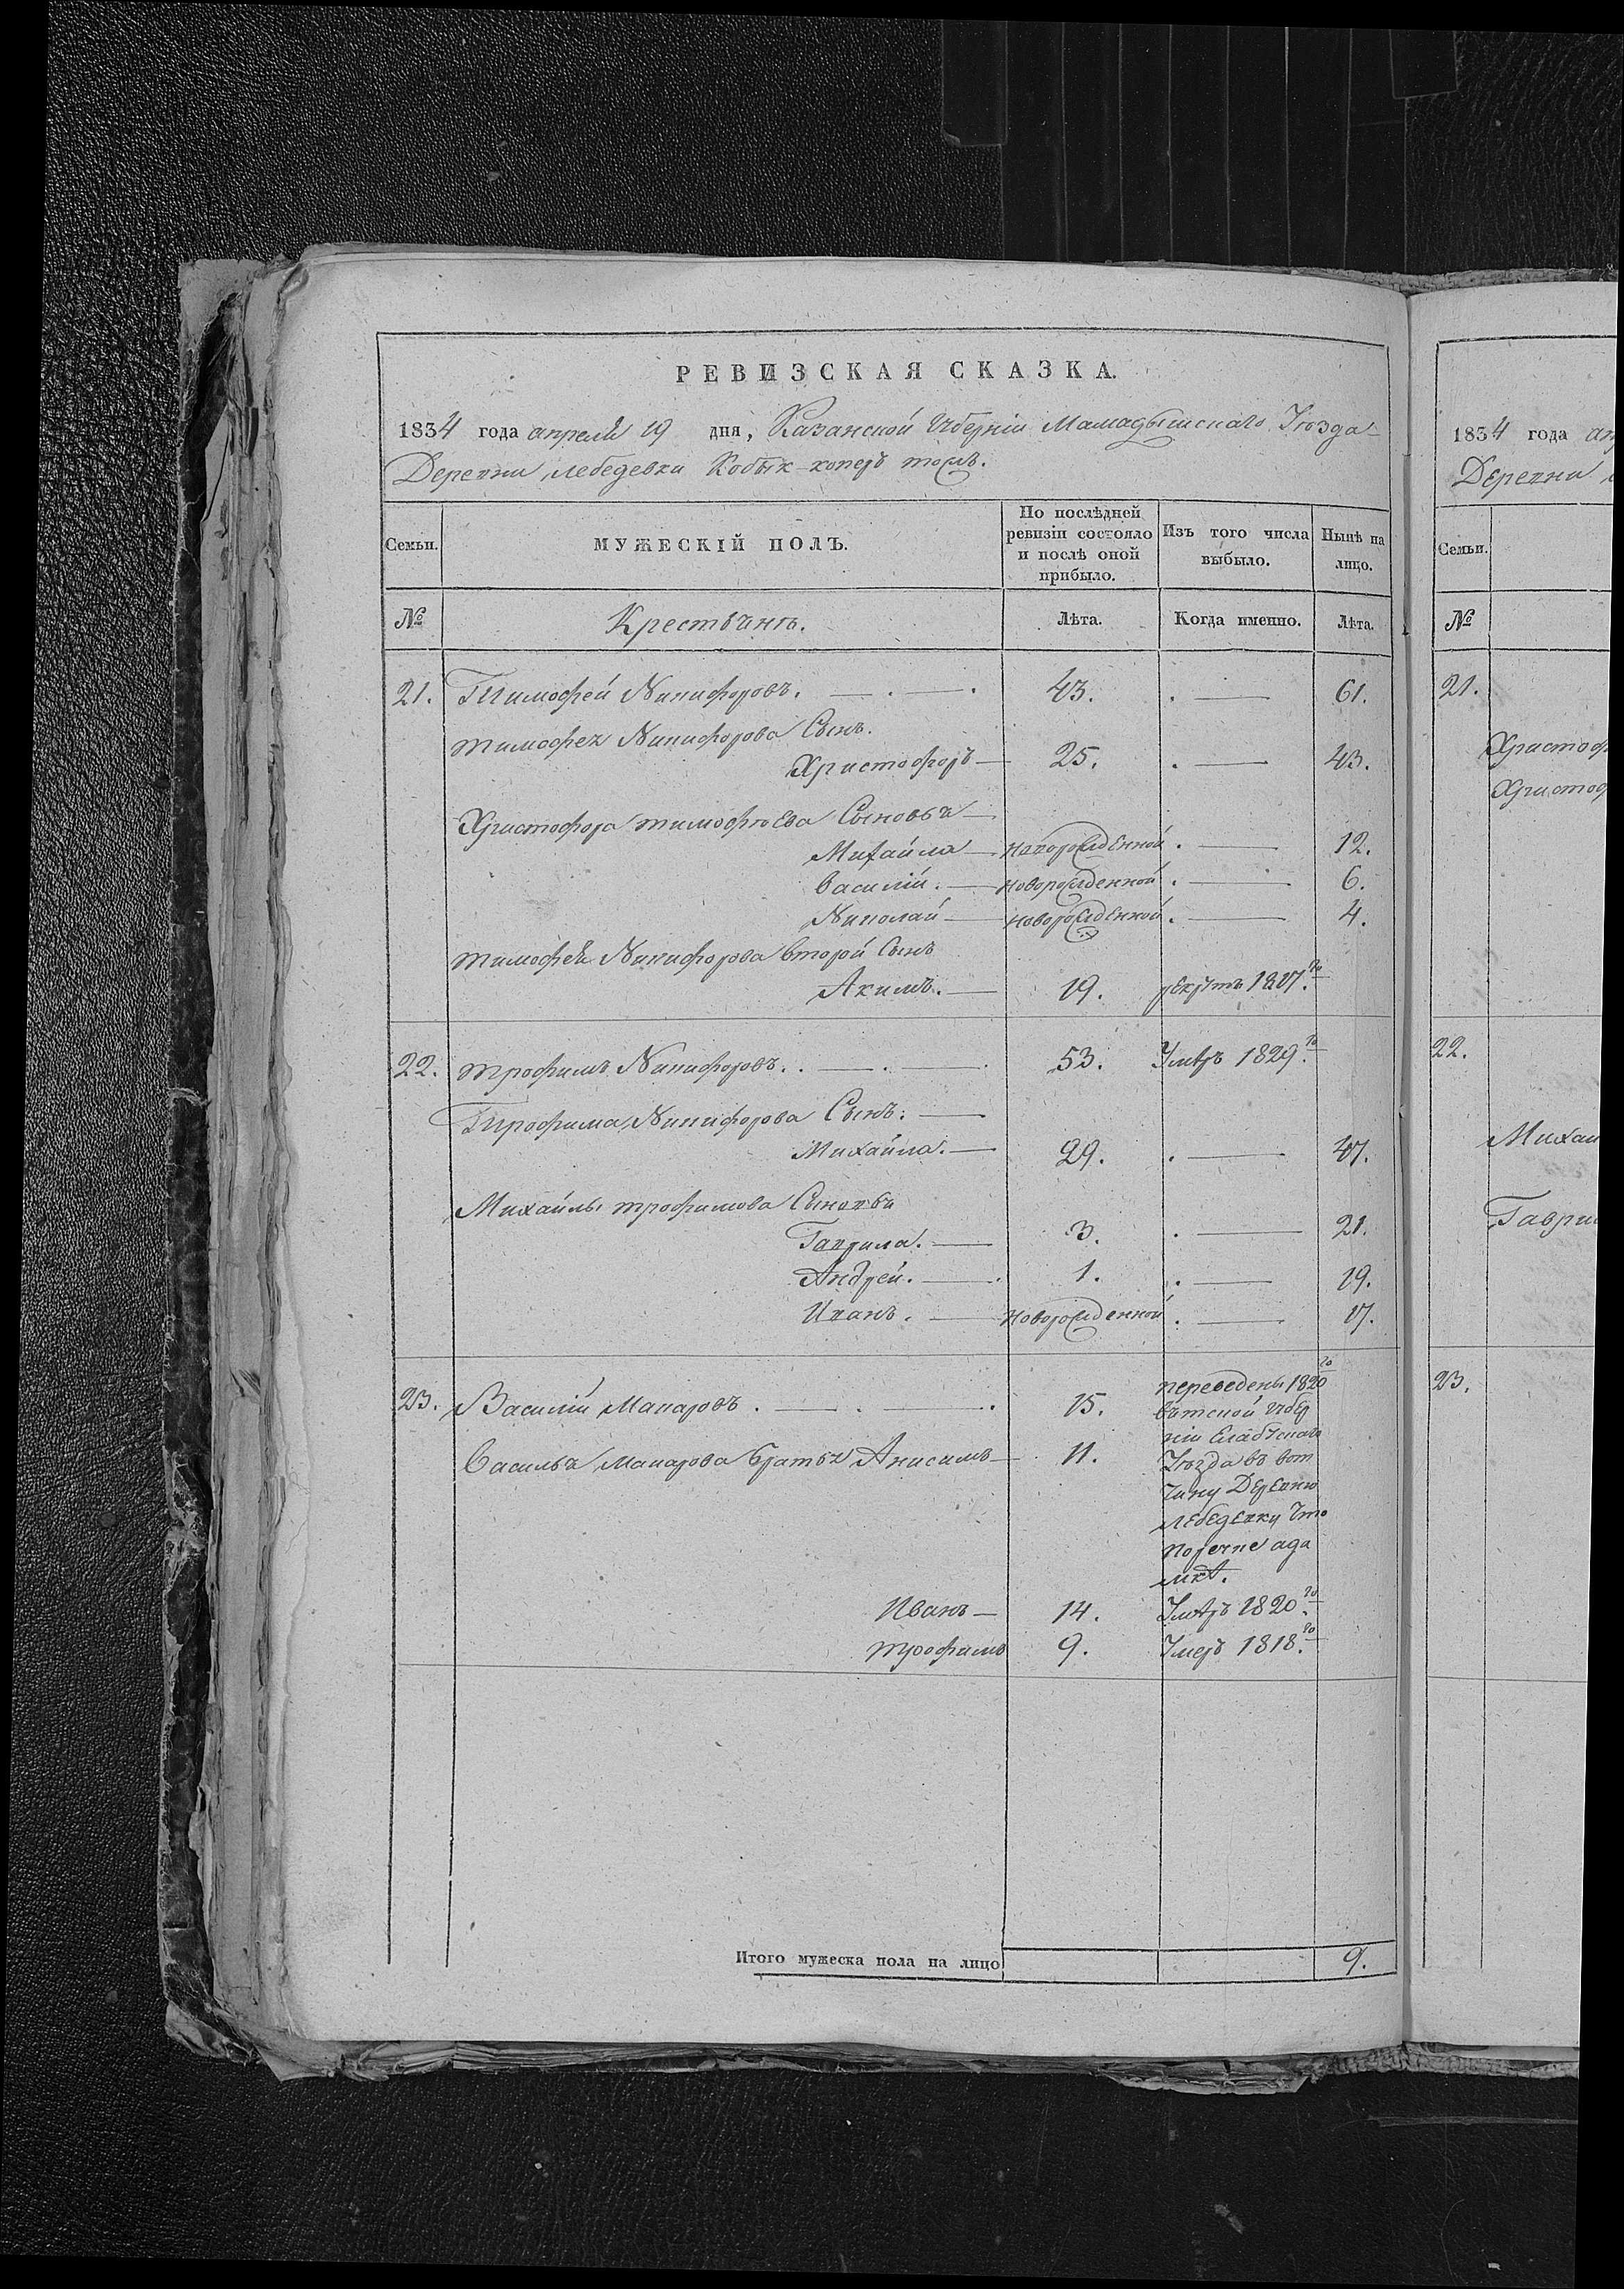 РЕВИЗСКАЯ СКАЗКА.
1834 года апреля 19 дня, Казанской Губерніи Мамадышскаго Уѣзда
Деревни Лебедевки Кобык-копер тожъ.
Семьи. МУЖЕСКІЙ ПОЛЪ. По послѣдней ревизіи состояло и послѣ оной прибыло. Изъ того числа выбыло. Нынѣ на лицо.
№ Крестьянъ. Лѣта. Когда именно. Лѣта.
21. Тимофей Никифоровъ. 43. 61.
тимофея Никифорова Сынъ.
Христофоръ 25. 43.
Христофора тимофѣева Сыновья
Михайла новорожденной 12.
Василій. новорожденной 6.
Николай новорожденной 4.
тимофея Никифорова второй Сынъ
Акимъ. 19. рекрутъ 1827.го
22. трофимъ Никифоровъ. 53. Умеръ 1829.го
Трофима Никифорова Сынъ.
Михайла. 29. 47.
Михайлы трофимова Сыновья
Гаврила. 3. 21.
Андрей. 1. 19.
Иванъ. Новорожденной 17.
23. Василій Макаровъ. 15. переведены 1820го
вятской Губер
ніи Елабускаго
Василья Макарова братья Анисимъ 11. Уѣзда въ вот
чину Деревню
лебедевку что
Иванъ 14. Умеръ 1820.го
трофимъ 9. Умеръ 1818.го
Итого мужеска пола на лицо 9.
1834 года ап
Деревни
Семьи.
№
21.
Христоф
Христоф
22.
Михай
Гаври
23.